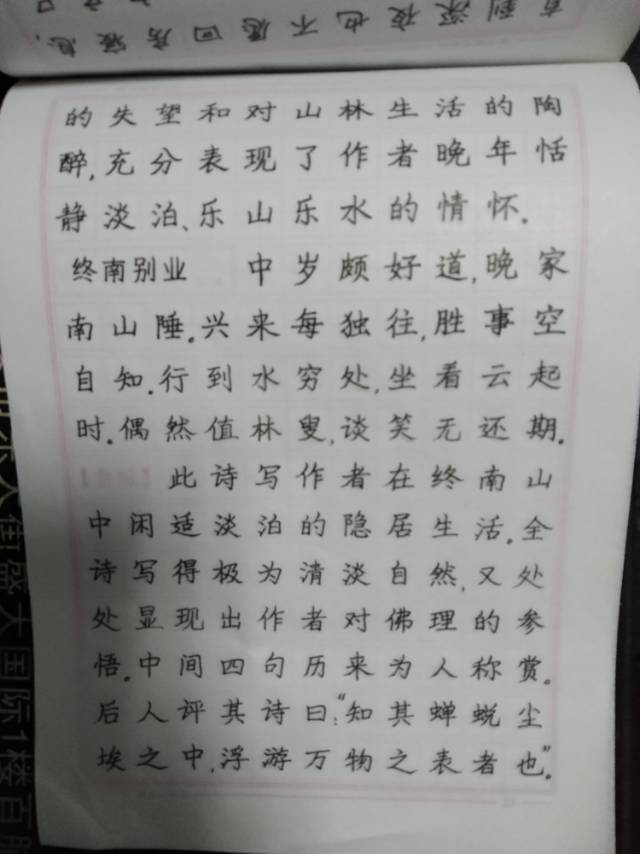 直到深夜也不愿回房寝息，
的失望和对山林生活的陶
醉，充分表现了作者晚年恬
静淡泊、乐山乐水的情怀。
终南别业 中岁颇好道，晚家
南山陲。兴来每独往，胜事空
自知。行到水穷处，坐看云起
时。偶然值林叟，谈笑无还期。
此诗写作者在终南山
中闲适淡泊的隐居生活。全
诗写得极为清淡自然，又处
处显现出作者对佛理的参
悟。中间四句历来为人称赏。
后人评其诗曰：“知其蝉蜕尘
埃之中，浮游万物之表者也”。
大街盛大国际1楼百